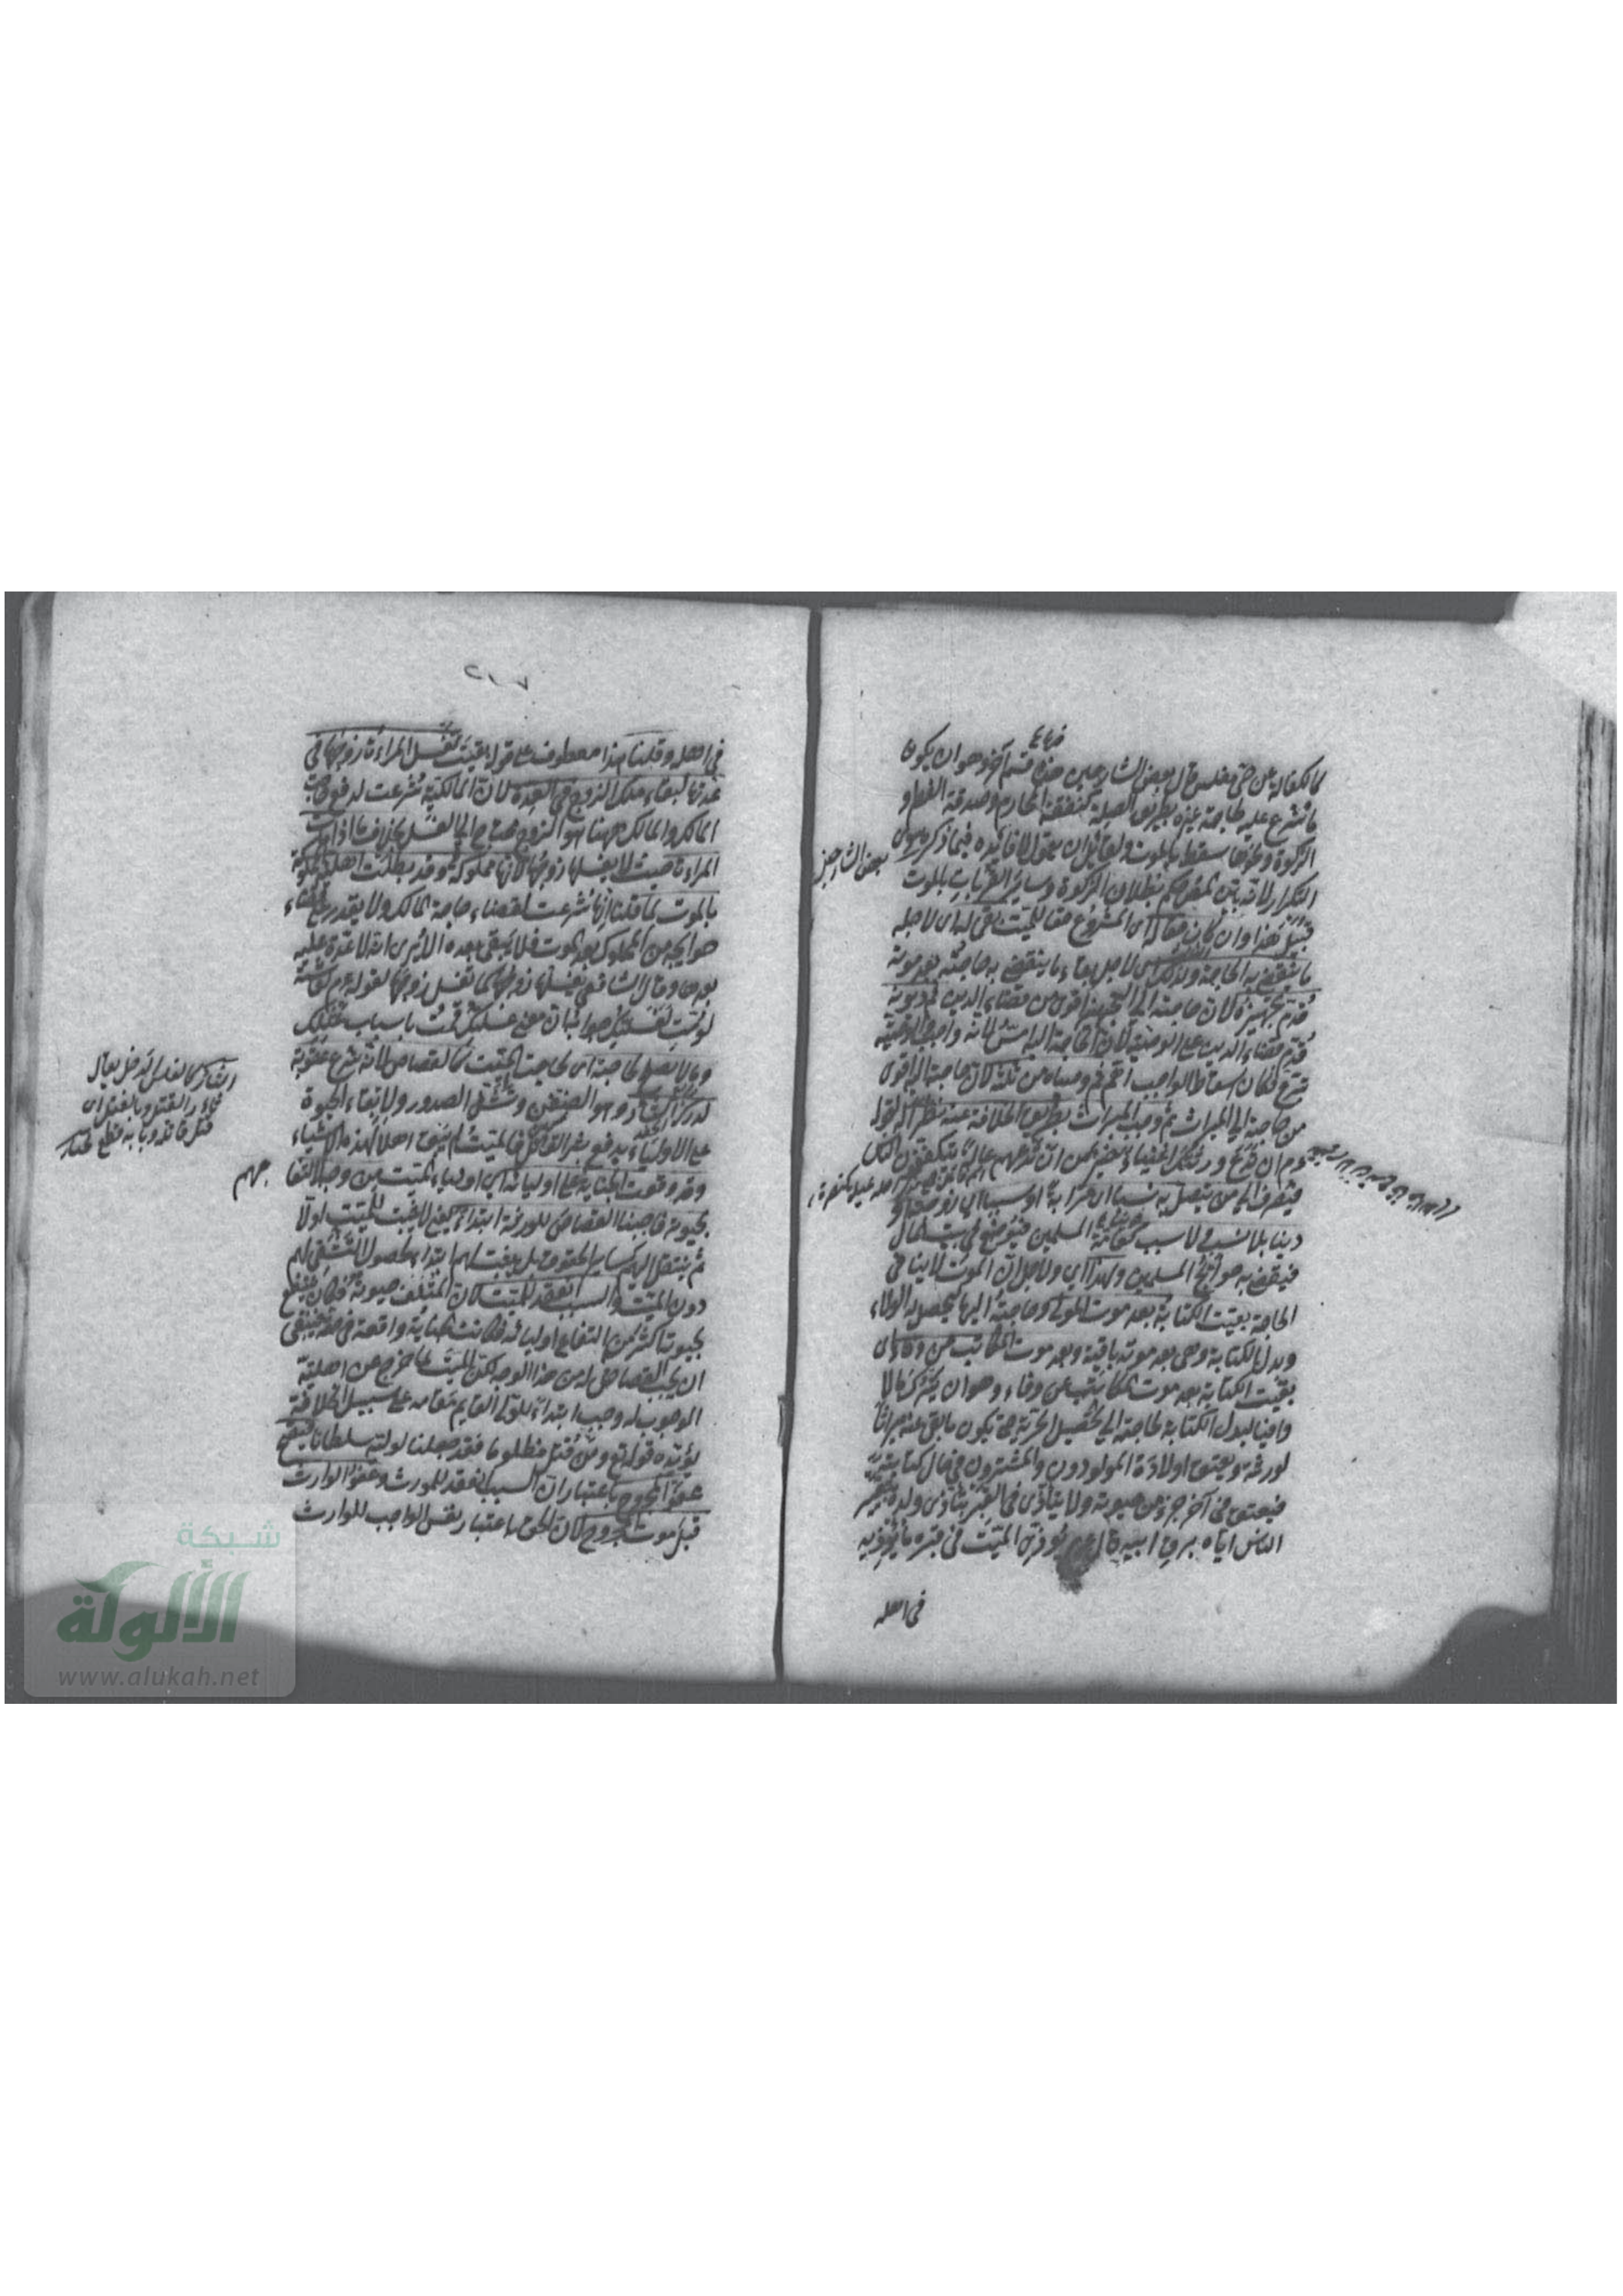 كالكفالة عن حي مفلس قال بعض الشارحين هذا قسم آخر وهو ان يكون
ما شرع عليه لحاجة غيره بطريق الصلة كنفقة المحارم وصدقة الفطر و
الزكوة ونحوها سقط بالموت ولقائل ان يقول لا فائدة فيما ذكره سوى
التكرار لانه بين المص حكم بطلان الزكوة وساير القربات بالموت
قبيل هذا وان كان حقا له اى المشروع حقا للميت بقى له اى لاجله
ما ينقضي به الحاجة ولذلك اى لاجل بقاء ما ينقضي به حاجته بعد موته
قدم تجهيزه لان حاجته الى التجهيز اقوى من قضاء الدين ثم ديونه
قدم قضاء الدين على الوصية لان الحاجة اليه امس لانه واجب والوصية
تبرع فكان اسقاط الواجب اهم ثم وصاياه من ثلثه لان حاجته اليه اقوى
من حاجته الى الميراث ثم وجب الميراث بطريق الخلافة عنه نظرا له لقوله
عم ان تدع ورثتك اغنياء خير من ان تدعهم عالة يتكففون الناس
فيصرف الى من يتصل به نسبا اى قرابة او سببا اى زوجية او
دينا بلا نسب ولا سبب كعامة المسلمين فيوضع في بيت المال
فيقضى به حوائج المسلمين ولهذا اى ولاجل ان الموت لا ينافي
الحاجة بقيت الكتابة بعد موت المولى لحاجته اليها ليحصل له الولاء
وبدل الكتابة وهى بعد موته باقية وبعد موت المكاتب عن وفاء اى
بقيت الكتابة بعد موت المكاتب عن وفاء وهو ان يترك مالا
وافيا لبدل الكتابة لحاجته الى تحصيل الحرية حتى يكون ما بقى عنه ميراثا
لورثته ويعتق اولاده المولودون والمشترون في حال كتابته
فيعتق في آخر جزء من حيوته ولا يتأذى في القبر بتأذى ولده بتعيير
الناس اياه برق ابيه قال عم يؤذى الميت في قبره ما يؤذيه
في اهله
بعض الشارحين
في اهله وقلنا هذا معطوف على قوله بقيت تغسل المراة زوجها في
عدتها لبقاء ملك الزوج في العدة لان المالكية شرعت لدفع حاجة
المالك والمالك ههنا هو الزوج محتاج الى الغسل بخلاف ما اذا ماتت
المراة حيث لا يغسلها زوجها لانها مملوكة وقد بطلت اهلية المملوكية
بالموت لما قلنا انها شرعت لقضاء حاجة المالك ولا يقدر على قضاء
حوايجه من المملوك بعد الموت فلا يبقى بعده الا ترى انه لا عدة عليه
بعدها وقال الشافعي يغسلها زوجها كما تغسل زوجها لقوله عم لعائشة
لو مت لغسلتك جوابه ان معنى غسلتك قمت باسباب غسلك
وما لا يصلح لحاجته اى لحاجة الميت كالقصاص لانه شرع عقوبة
لدرك الثار وهو الضغن وتشفي الصدور ولابقاء الحيوة
على الاولياء بدفع شر القاتل والميت لم يبق اهلا لهذه الاشياء
وقد وقعت الجناية على اوليائه اى اولياء الميت من وجه لانتفاعهم
بحيوته فاوجبنا القصاص للورثة ابتداء يعني لا يثبت للميت اولا
ثم ينتقل اليهم كساير الحقوق بل يثبت لهم ابتداء لحصول التشفي لهم
دون الميت والسبب انعقد للميت لان المتلف حيوته فكان ينتفع
بحيوته اكثر من انتفاع اوليائه فكانت الجناية واقعة في حقه فينبغي
ان يجب القصاص له من هذا الوجه لكن الميت لما خرج عن اهلية
الوجوب له وجب ابتداء للولى القايم مقامه على سبيل الخلافة
يؤيده قوله تع ومن قتل مظلوما فقد جعلنا لوليه سلطانا فيصح
عفو المجروح باعتبار ان السبب انعقد للمورث وعفو الوارث
قبل موت المجروح لان الحق باعتبار نفس الواجب للوارث
شبكة
الألولة
www.alukah.net